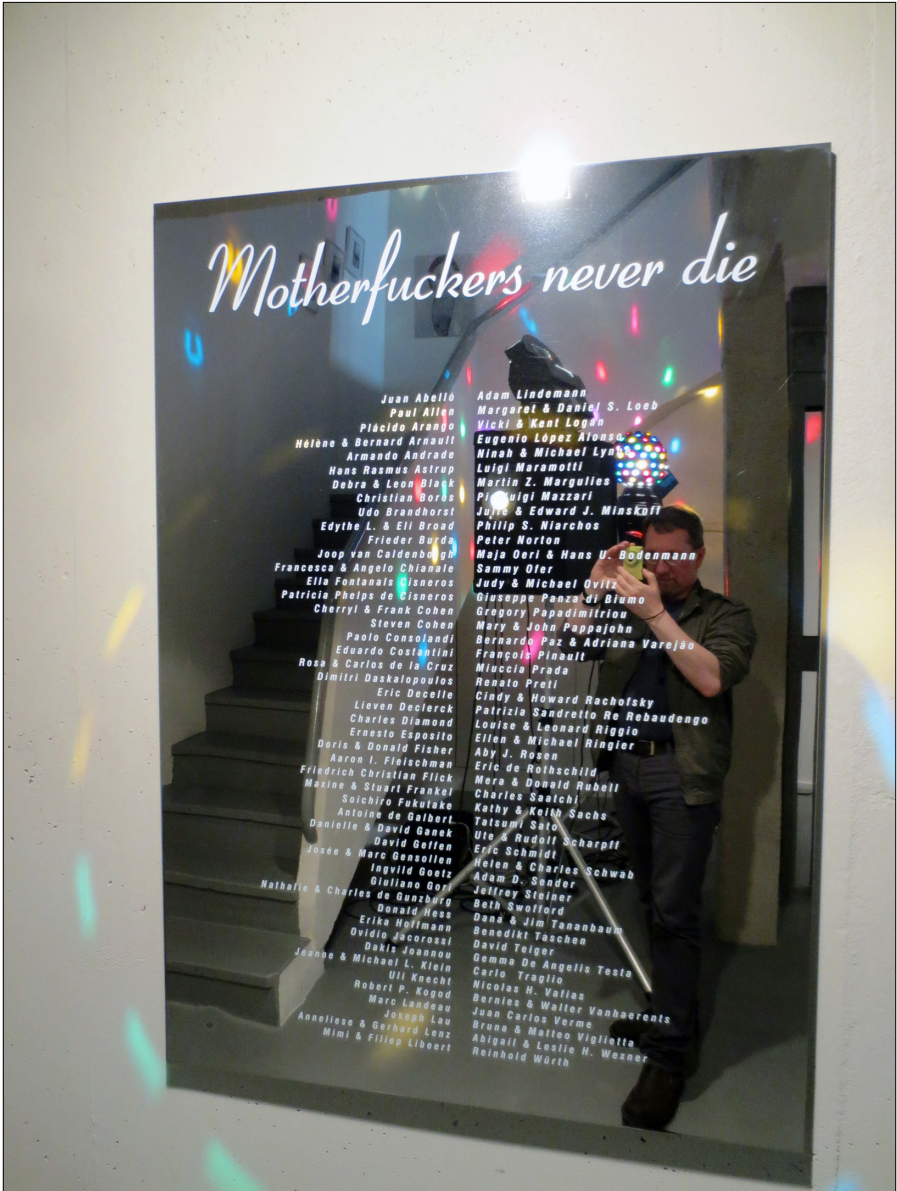 Motherfuckers never die
Juan Abelló
Paul Allen
Plácido Arango
Hélène & Bernard Arnault
Armando Andrade
Hans Rasmus Astrup
Debra & Leon Black
Christian Boros
Udo Brandhorst
Edythe L. & Eli Broad
Frieder Burda
Joop van Caldenborgh
Francesca & Angelo Chianale
Ella Fontanals Cisneros
Patricia Phelps de Cisneros
Cherryl & Frank Cohen
Steven Cohen
Paolo Consolandi
Eduardo Costantini
Rosa & Carlos de la Cruz
Dimitri Daskalopoulos
Eric Decelle
Lieven Declerck
Charles Diamond
Ernesto Esposito
Doris & Donald Fisher
Aaron I. Fleischman
Friedrich Christian Flick
Maxine & Stuart Frankel
Soichiro Fukutake
Antoine de Galbert
Danielle & David Ganek
David Geffen
Josée & Marc Gensollen
Ingvild Goetz
Giuliano Gori
Nathalie & Charles de Gunzburg
Donald Hess
Erika Hoffmann
Ovidio Jacorossi
Dakis Joannou
Jeanne & Michael L. Klein
Uli Knecht
Robert P. Kogod
Marc Landeau
Joseph Lau
Anneliese & Gerhard Lenz
Mimi & Filiep Libeert
Adam Lindemann
Margaret & Daniel S. Loeb
Vicki & Kent Logan
Eugenio López Alonso
Ninah & Michael Lynne
Luigi Maramotti
Martin Z. Margulies
Pierluigi Mazzari
Julie & Edward J. Minskoff
Philip S. Niarchos
Peter Norton
Maja Oeri & Hans U. Bodenmann
Sammy Ofer
Judy & Michael Ovitz
Giuseppe Panza di Biumo
Gregory Papadimitriou
Mary & John Pappajohn
Bernardo Paz & Adriana Varejão
François Pinault
Miuccia Prada
Renato Preti
Cindy & Howard Rachofsky
Patrizia Sandretto Re Rebaudengo
Louise & Leonard Riggio
Ellen & Michael Ringier
Aby J. Rosen
Eric de Rothschild
Mera & Donald Rubell
Charles Saatchi
Kathy & Keith Sachs
Tatsumi Sato
Ute & Rudolf Scharpff
Eric Schmidt
Helen & Charles Schwab
Adam D. Sender
Jeffrey Steiner
Beth Swofford
Dana & Jim Tananbaum
Benedikt Taschen
David Teiger
Gemma De Angelis Testa
Carlo Traglio
Nicolas H. Vafias
Bernies & Walter Vanhaerents
Juan Carlos Verme
Bruna & Matteo Viglietta
Abigail & Leslie H. Wexner
Reinhold Würth